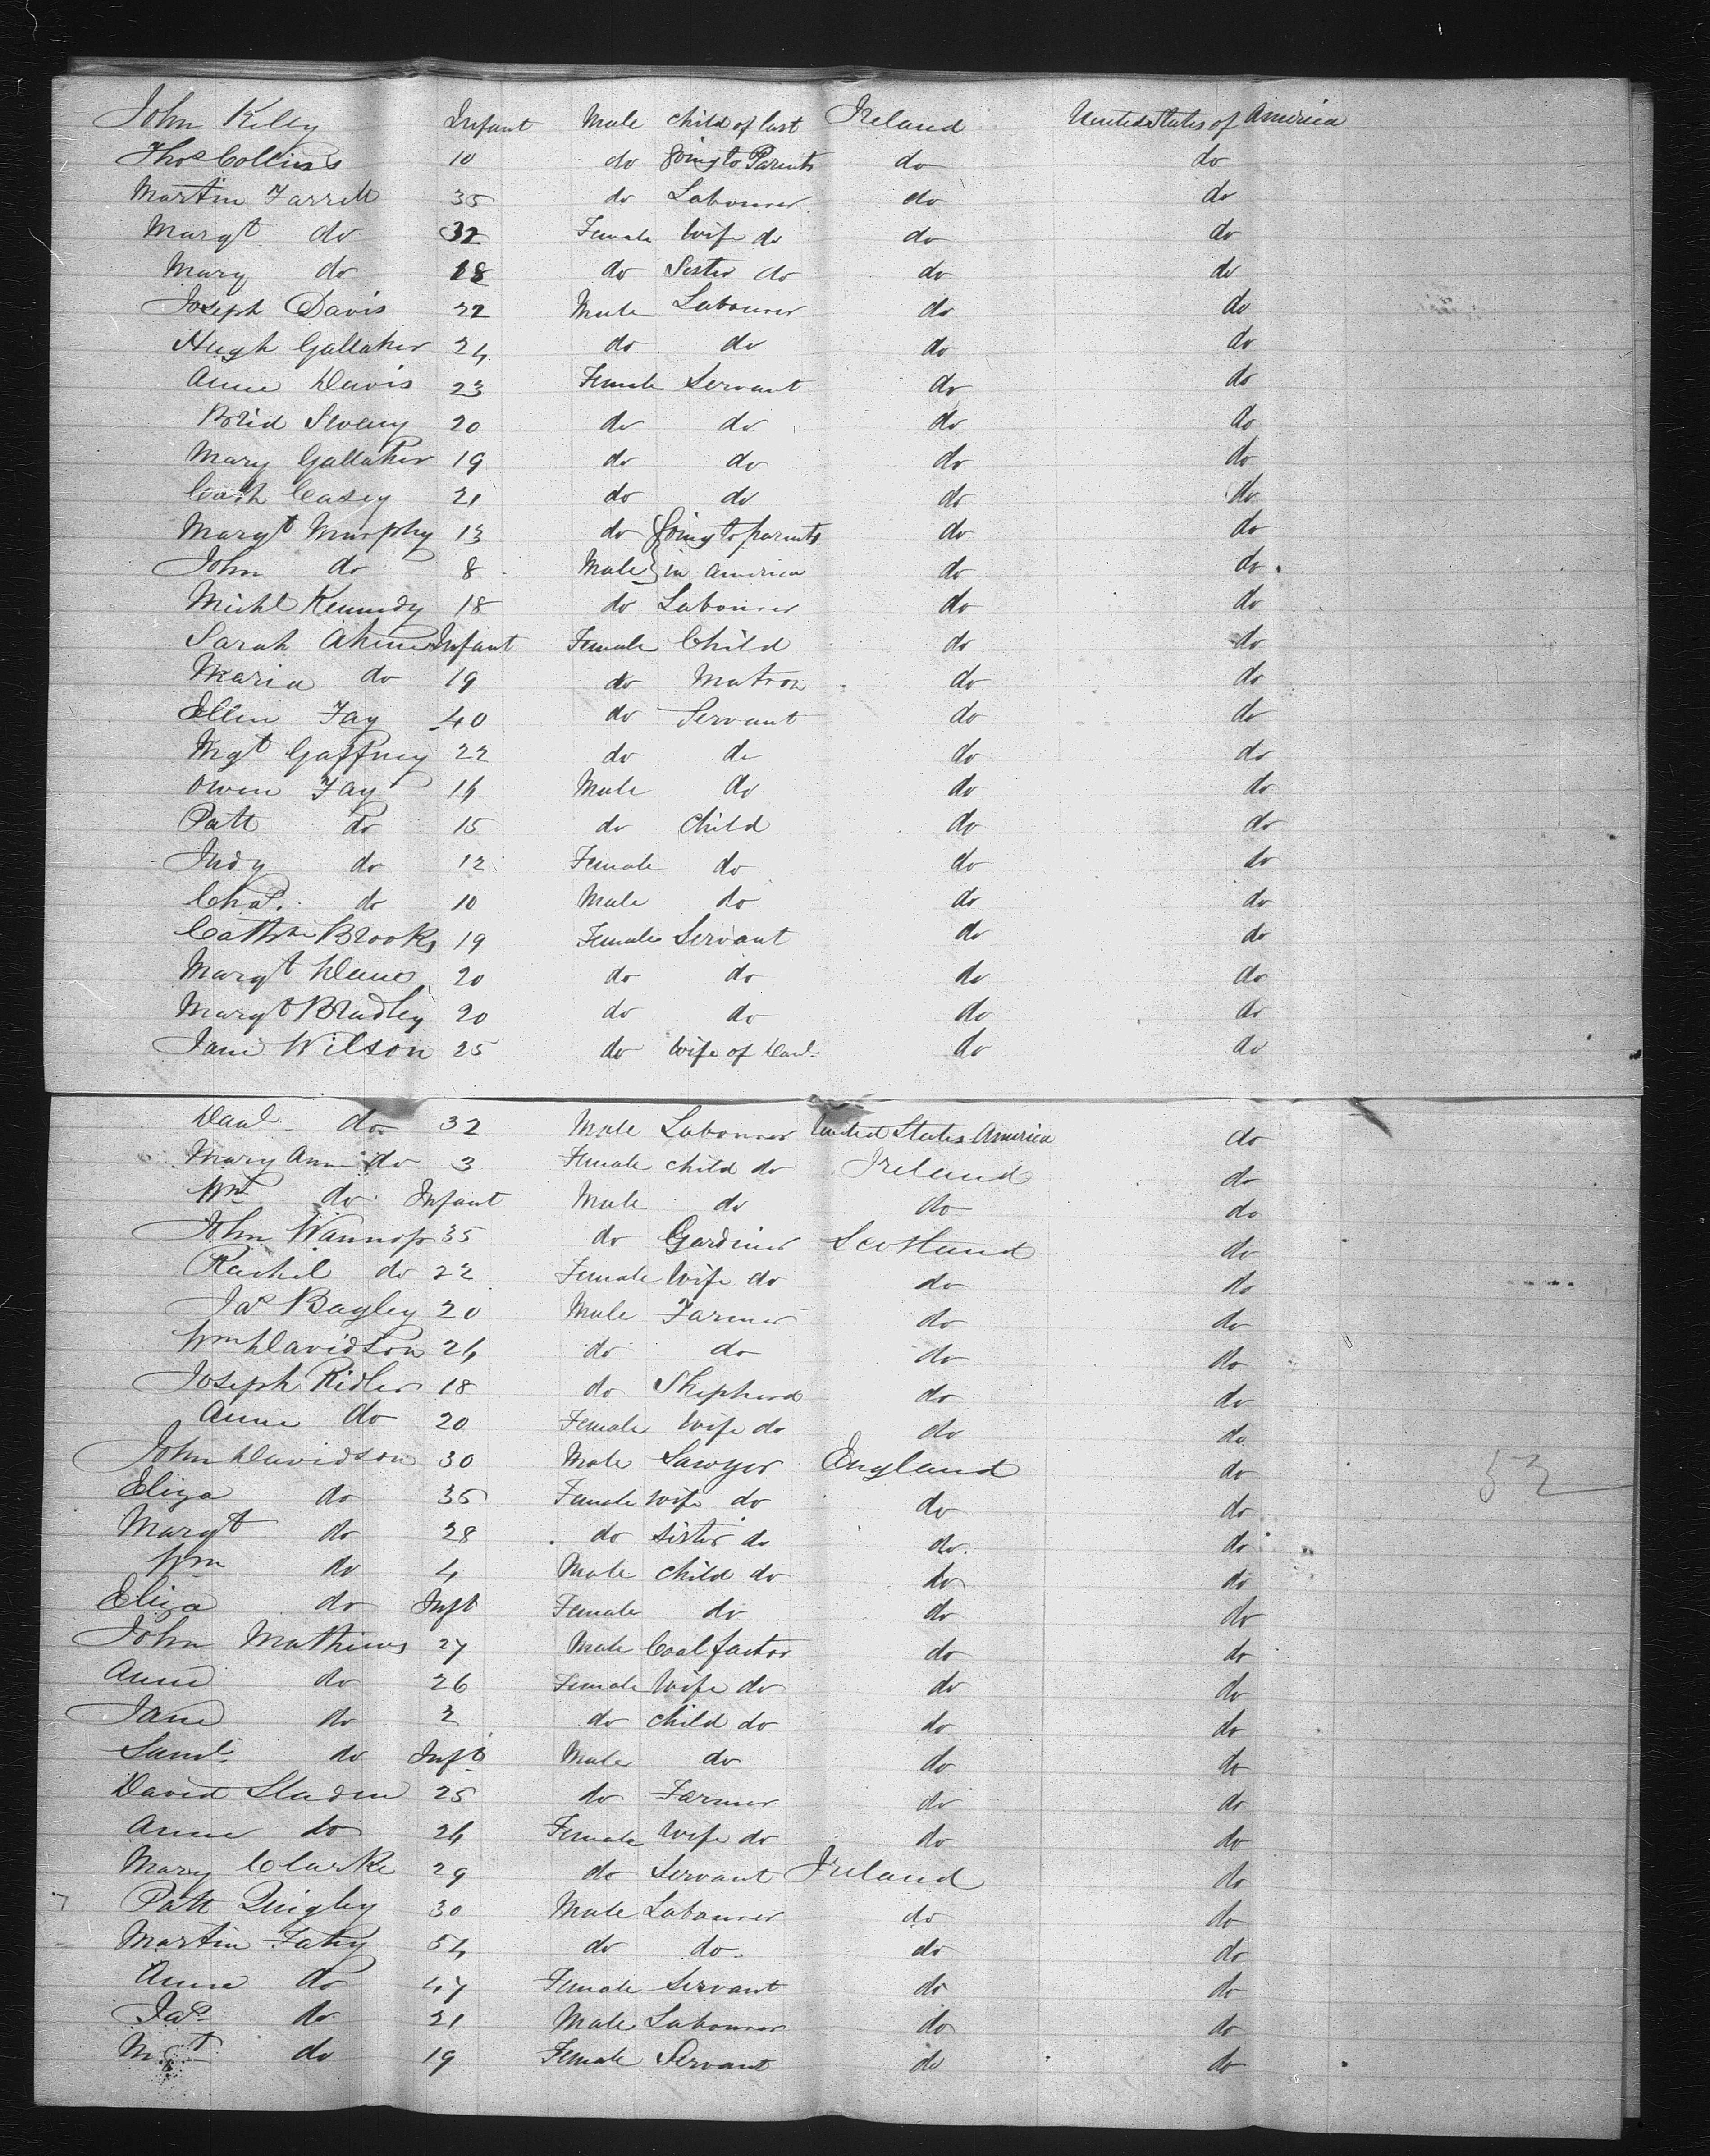 John Kiley Infant Male child of last Ireland United States of America
Thos Collins 10 do going to Parents do do
Martin Farrell 35 do Labourer do do
Margt do 32 Female Wife do do do
Mary do 18 do Sister do do do
Joseph Davis 22 Male Labourer do do
Hugh Gallaher 24 do do do do
Anne Davis 23 Female Servant do do
Brid Sweny 20 do do do do
Mary Gallaher 19 do do do do
Cath Casey 21 do do do do
Margt Murphy 13 do going to parents do do
John do 8 Male in America do do
Michl Kennedy 18 do Labourer do do
Sarah Ahern Infant Female Child do do
Maria do 19 do Matron do do
Ellen Fay 40 do Servant do do
Mgt Gaffney 22 do do do do
Owen Fay 14 Male do do do
Patt do 15 do Child do do
Judy do 12 Female do do do
Chas. do 10 Male do do do
Cathne Brooks 19 Female Servant do do
Margt 20 do do do do
Margt Bradley 20 do do do do
Jane Wilson 25 do Wife of Danl do do
Danl do 32 Male Labourer United States America do
Mary Ann do 3 Female child do Ireland do
Wm do Infant Male do do do
John Wannop 35 do Gardiner Scotland do
Rachel do 22 Female Wife do do do
Jas Bagley 20 Male Farmer do do
Wm Davidson 24 do do do do
Joseph Ridler 18 do Shepherd do do
Anne do 20 Female Wife do do do
John Davidson 30 Male Sawyer England do
Eliza do 35 Female wife do do do
Margt do 28 do sister do do do
Wm do 4 Male child do do do
Eliza do Inft Female do do do
John Mathews 27 Male Coal factor do do
Anne do 26 Female Wife do do do
Jane do 2 do child do do do
Saml do Inft Male do do do
David Sladen 25 do Farmer do do
Anne do 24 Female Wife do do do
Mary Clarke 29 do Servant Ireland do
Patt Quigley 30 Male Labourer do do
Martin Fahy 54 do do do do
Anne do 47 Female Servant do do
Jas do 21 Male Labourer do do
Mgt do 19 Female Servant do do